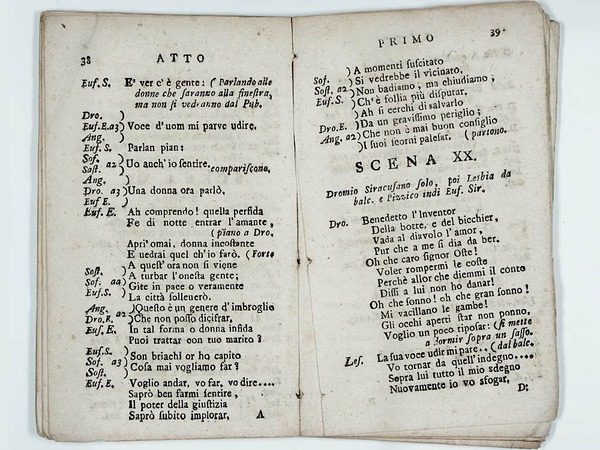 38 ATTO
Euf. S. E' ver c'è gente: ( Parlando alle
donne che saranno alla finestra,
ma non si vedranno dal Pub.
Dro. )
Euf.E.a3 ) Voce d'uom mi parve udire.
Ang. )
Euf. S. Parlan pian:
Sof. a2 ) Uo anch'io sentire. compariscono.
Sast. )
Ang. )
Dro. a3 ) Una donna ora parlò.
Euf E. )
Euf. E. Ah comprendo! quella perfida
Fe di notte entrar l'amante,
( piano a Dro.
Apri' omai, donna incostante
E uedrai quel ch'io farò. ( Forte
Sost. ) A quest' ora non si viene
Sof. aa ) A turbar l'onesta gente;
Euf. S. ) Gite in pace o veramente
La città solleuerò.
Ang. )Questo è un genere d'imbroglio
Dro.E. a2 ) Che non posso dicifrar,
Euf. E. In tal forma o donna infida
Puoi trattar con tuo marito?
Euf.S. )
Sof. a3 ) Son briachi or ho capito
Sost. ) Cosa mai vogliamo far?
Euf. E. Voglio andar, vo far, vo dire....
Saprò ben farmi sentire,
Il poter della giustizia
Saprò subito implorar, A
PRIMO 39
) A momenti suscitato
Sof. ) Si vedrebbe il vicinato,
Sost. a2 ) Non badiamo, ma chiudiamo;
Euf. S. ) Ch'è follia più disputar,
) Ah si cerchi di salvarlo
Dro.E. ) Da un gravissimo periglio;
Ang. a2 ) Che non è mai buon consiglio
) I suoi scorni palesar. ( partono.
SCENA XX.
Dromio Siracusano solo, poi Lesbia da
balc. e Pizzico indi Euf. Sir.
Dro. Benedetto l'Inventor
Della botte, e del bicchier,
Vada al diavolo l'amor,
Pur che a me si dia da ber.
Oh che caro signor Oste!
Voler rompermi le coste
Perchè allor che diemmi il conto
Dissi a lui non ho danar!
Oh che sonno! oh che gran sonno!
Mi vacillano le gambe!
Gli occhi aperti star non ponno,
Voglio un poco riposar: ( si mette
a dormir sopra un sasso.
Les. La sua voce udir mi pare.. ( dal balc.
Vo tornar da quell' indegno....
Sopra lui tutto il mio sdegno
Nuovamente io vo sfogar, D: